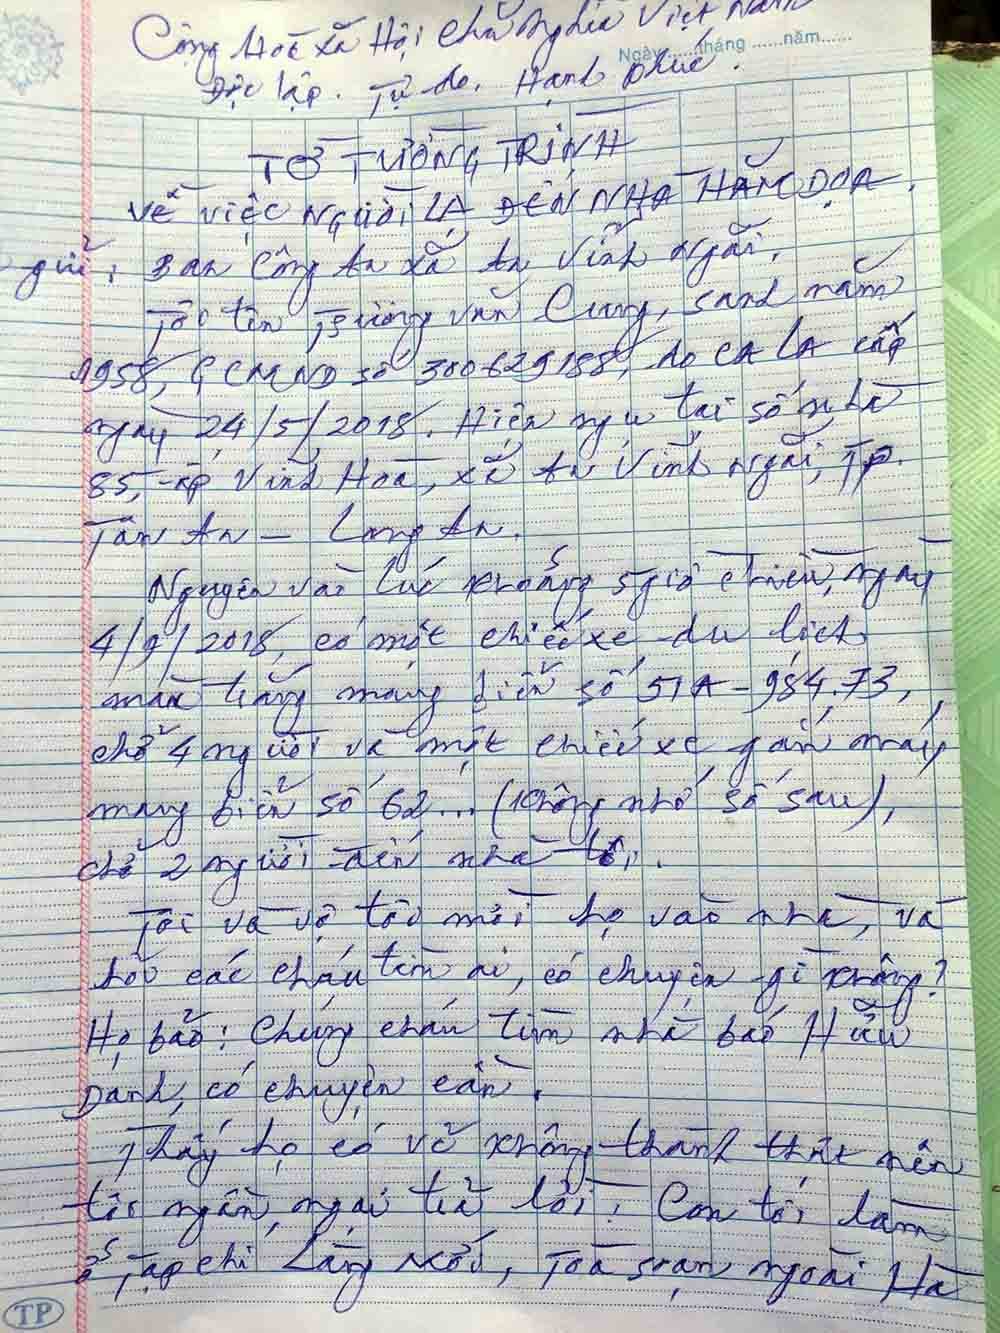 Cộng Hoà Xã Hội Chủ Nghĩa Việt Nam
Ngày......tháng......năm......
Độc lập. Tự do. Hạnh phúc.
TỜ TƯỜNG TRÌNH
Về việc NGƯỜI LẠ ĐẾN NHÀ HĂM DỌA.
gửi: Ban Công An xã An Vĩnh Ngãi.
Tôi tên Trương Văn Cung, sanh năm
1958, GCMND số 300629188, do CA LA cấp
ngày 24/5/2018. Hiện ngụ tại số nhà
85, ấp Vĩnh Hoà, xã An Vĩnh Ngãi, TP.
Tân An – Long An.
Nguyên vào lúc khoảng 5 giờ chiều, ngày
4/9/2018, có một chiếc xe du lịch
màu trắng mang biển số 51A-984.73,
chở 4 người và một chiếc xe gắn máy
mang biển số 62... (không nhớ số sau),
chở 2 người đến nhà tôi.
Tôi và vợ tôi mời họ vào nhà, và
hỏi các cháu tìm ai, có chuyện gì không?
Họ bảo: Chúng cháu tìm nhà báo Hữu
Danh, có chuyện cần.
Thấy họ có vẻ không thành thật nên
tôi ngần ngại trả lời: Con tôi làm
ở Tạp chí Làng Mới, Toà soạn ngoài Hà
TP